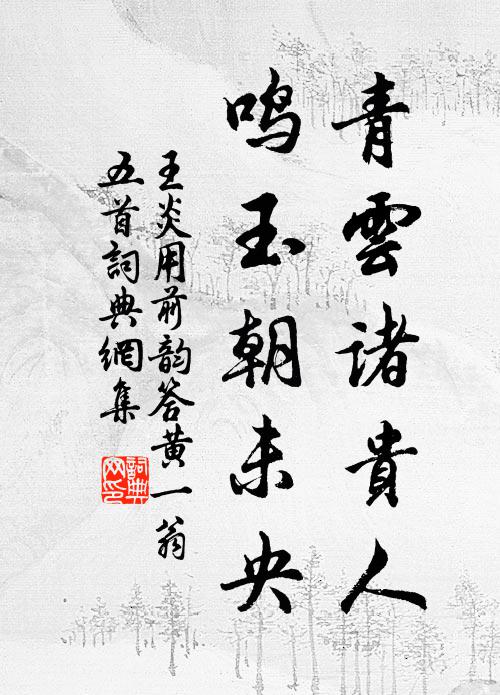 青雲諸貴人
鸣玉朝未央
王炎用前韵答黄一翁
五首詞典網集
詞典
网印